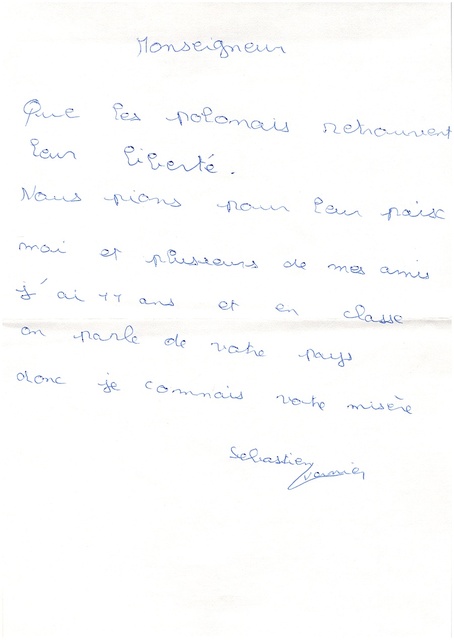 Monseigneur
Que les polonais retrouvent
leur liberté.
Nous prions pour leur paix
moi et plusieurs de mes amis
j'ai 11 ans et en classe
on parle de votre pays
donc je connais votre misère
Sébastien